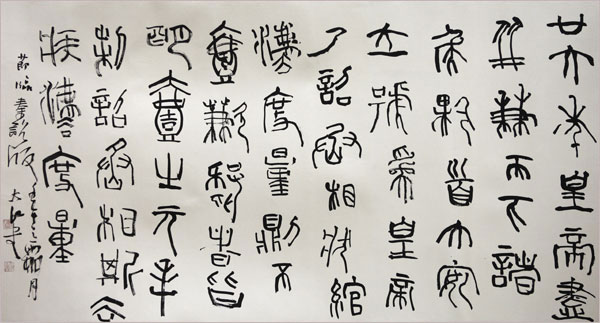 廿六年皇帝盡
并兼天下諸
侯黔首大安
立號為皇帝
乃詔丞相狀綰
灋度量則不
壹歉疑者皆
明壹之元年
制詔丞相斯去
疾灋度量
節臨秦詔版